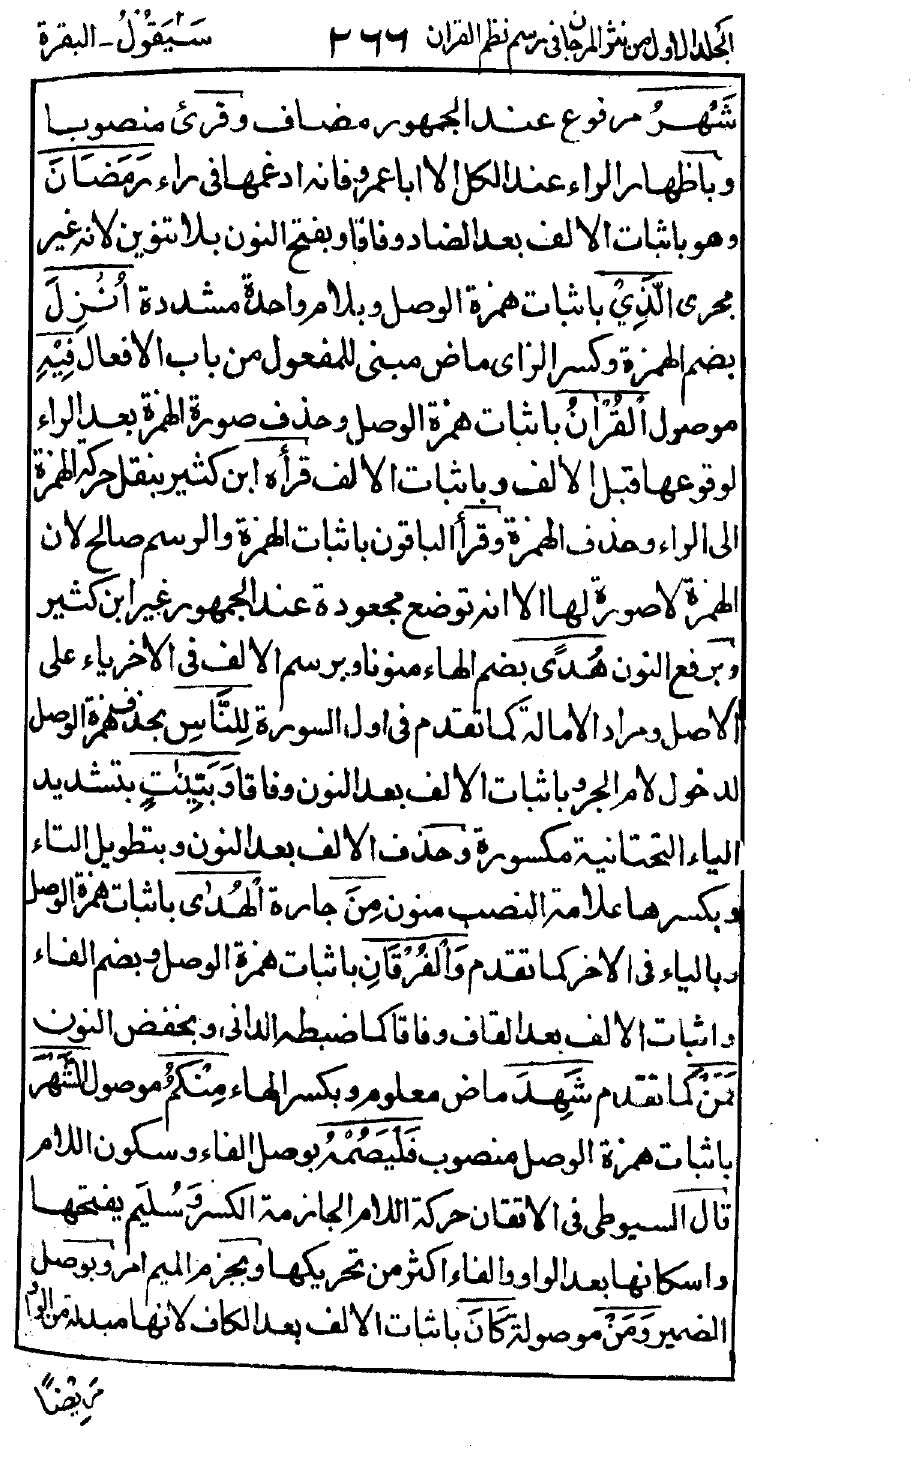 الجلد الاول من نثر المرجان فى رسم نظم القران ٢٦٦ سَيَقُوْلُ ـ البقرة
شَهْرُ مرفوع عند الجمهور مضاف وقرئ منصوبا
وباظهار الراء عند الكل الا ابا عمرو فانه ادغمها فى راء رَمَضَانَ
وهو باثبات الالف بعد الضاد وفاقا وبفتح النون بلا تنوين لانه غير
مجرى الَّذِيْ باثبات همزة الوصل وبلام واحدة مشددة اُنْزِلَ
بضم الهمزة وكسر الزاى ماض مبنى للمفعول من باب الافعال فِيْهِ
موصول الْقُرْاٰنُ باثبات همزة الوصل وحذف صورة الهمزة بعد الراء
لوقوعها قبل الالف وباثبات الالف قرأه ابن كثير بنقل حركة الهمزة
الى الراء وحذف الهمزة وقرأ الباقون باثبات الهمزة والرسم صالح لان
الهمزة لا صورة لها الا انه توضع مجعودة عند الجمهور غير ابن كثير
وبرفع النون هُدًى بضم الهاء منونا وبرسم الالف فى الاخر ياء على
الاصل ومراد الامالة كما تقدم فى اول السورة لِلنَّاسِ بحذف همزة الوصل
لدخول لام الجر وباثبات الالف بعد النون وفاقا وَبَيِّنٰتٍ بتشديد
الياء التحتانية مكسورة وحذف الالف بعد النون وبتطويل التاء
وبكسرها علامة النصب منون مِنَ جارة الْهُدٰى باثبات همزة الوصل
وبالياء فى الاخر كما تقدم وَالْفُرْقَانِ باثبات همزة الوصل وبضم الفاء
واثبات الالف بعد القاف وفاقا كما ضبطه الدانى وبخفض النون
فَمَنْ كما تقدم شَهِدَ ماض معلوم وبكسر الهاء مِنْكُمُ موصول الشَّهْرَ
باثبات همزة الوصل منصوب فَلْيَصُمْهُ بوصل الفاء وسكون اللام
قال السيوطى فى الاتقان حركة اللام الجازمة الكسر وَسُلَيم يفتحها
واسكانها بعد الواو والفاء اكثر من تحريكها وبجزم الميم امر وبوصل
الضمير وَمَنْ موصولة كَانَ باثبات الالف بعد الكاف لانها مبدلة من الواو
مَرِيْضًا